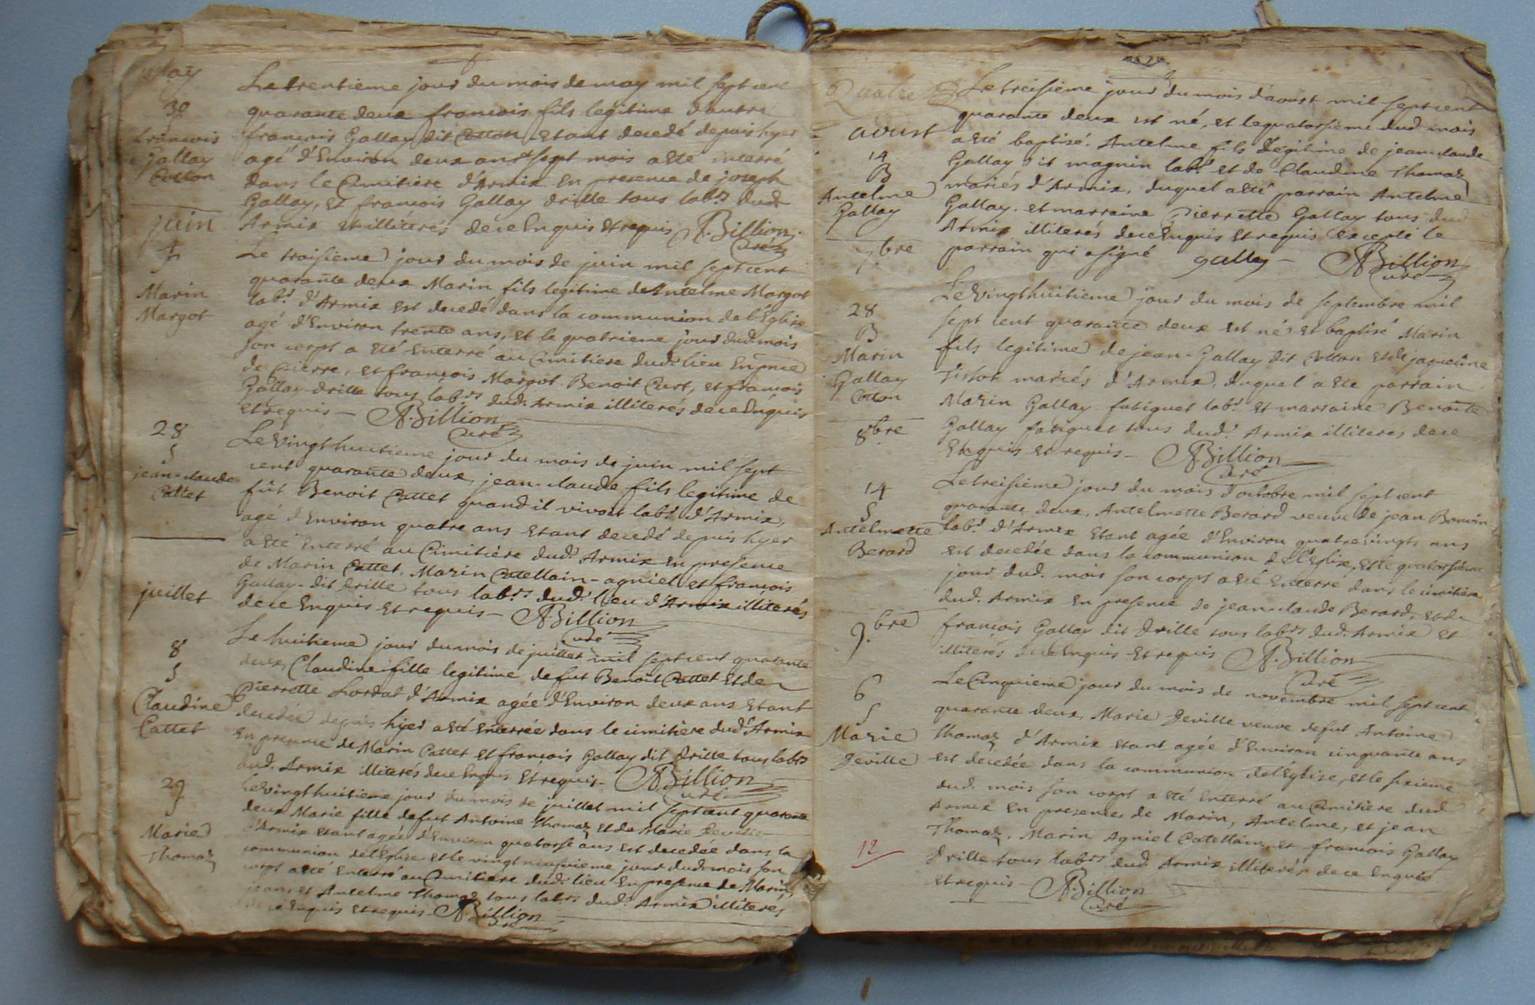 May
30
François
Gallay
Cotton
Le trentieme jour du mois de may mil sept cent
quarante deux francois fils legitime d'autre
françois Gallay dit Cotton, Etant decedé depuis hyer
agé d'Environ deux ans sept mois a Eté interré
dans le Cimitière d'Armix En presence de joseph
Gallay, Et francois Gallay drille tous lab.rs dud.
Armix et illiterés de ce Enquis Et requis Billion
curé
juin
4
S
Marin
Margot
Le troisieme jour du mois de juin mil sept cent
quarante deux Marin fils legitime de Antelme Margot
lab.r d'Armix est decedé dans la communion de l'Eglise
agé d'Environ trente ans, et le quatrieme jour dud. mois
son corps a Eté Enterré au Cimitiere dud. lieu En p.nce
de pierre, et françois Margot, Benoit Curt, et françois
Gallay drille tous lab.rs dud. Armix illiterés de ce Enquis
et requis — Billion
curé
28
S
jean-claude
Cattet
Le Vingthuitieme jour du mois de juin mil sept
cent quarante deux, jean-claude fils legitime de
fût Benoit Cattet quand il vivoit lab.r d'Armix,
agé d'Environ quatre ans Etant decedé depuis hyer
a Eté Enterré au Cimitière dud. Armix En presence
de Marin Cattet, Marin Catellain-agniel et françois
Gallay-dit drille tous lab.rs dud. lieu d'Armix illiterés
de ce Enquis Et requis — Billion
curé
juillet
8
S
Claudine
Cattet
Le huitieme jour du mois de juillet mil sept cent quarante
deux, Claudine fille legitime de fut Benoit Cattet Et de
Pierrette d'Armix agée d'Environ deux ans Etant
decedée depuis hyer a Eté Enterrée dans le cimitière dud. Armix
En presence de Marin Cattet Et françois Gallay dit drille tous lab.rs
dud. Armix illiterés de ce Enquis Et requis — Billion
curé
29
S
Marie
Thomaz
Le Vingthuitieme jour du mois de juillet mil sept cent quarante
deux Marie fille de fut Antoine Thomaz et de Marie Deville
d'Armix etant agée d'Environ quatorse ans est decedée dans la
communion de l'Eglise et le vingt neuvieme jour dud. mois son
corps a Eté Enterré au Cimitière dud. lieu En presence de Marin,
jean et Antelme Thomaz tous lab.rs dud. Armix illiteres
Enquis et requis — Billion
Quatre
aoust
14
B
Antelme
Gallay
Le treisieme jour du mois d'aoust mil sept cent
quarante deux est né, et le quatorsieme dud. mois
a Eté baptisé. Antelme fils legitime de jean-claude
Gallay dit magnin lab.r et de Claudine Thomaz
mariés d'Armix, duquel a Eté parrain Antelme
Gallay. et marraine Pierrette Gallay tous dud.
Armix illiterés de ce Enquis Et requis Excepté le
parrain qui a signé gallay — Billion
curé
7.bre
28
B
Marin
Gallay
Cotton
Le Vingthuitieme jour du mois de septembre mil
sept cent quarante deux est né et baptisé Marin
fils legitime de jean-Gallay dit Cotton et de jaqueline
Tissot mariés d'Armix, duquel a Eté parrain
Marin Gallay fatiguet lab.r et marraine Benoite
Gallay fatiguet tous dud. Armix illiteres de ce
Enquis et requis — Billion
curé
8.bre
14
S
Antelmette
Berard
Le treisieme jour du mois d'octobre mil sept cent
quarante deux, Antelmette Berard veuve de jean
lab.r d'Armix Etant agée d'Environ quatrevingts ans
est decedée dans la communion de l'Eglise, et le quatorsieme
jour dud. mois son corps a Eté Enterré dans le cimitière
dud. Armix En presence de jean-claude Berard, et de
françois Gallay dit drille tous lab.rs dud. Armix et
illiterés de ce Enquis Et requis Billion
curé
9.bre
6
S
Marie
Deville
Le Cinquieme jour du mois de novembre mil sept cent
quarante deux, Marie Deville veuve de fut Antoine
Thomaz d'Armix etant agée d'Environ cinquante ans
est decedée dans la communion de l'Eglise, et le sixieme
dud. mois son corps a eté Enterré au Cimitière dud.
Armix En presence de Marin, Antelme, et jean
Thomaz, Marin Agniel Catellain, et françois Gallay
drille tous lab.rs dud. Armix illiterés de ce Enquis
et requis — Billion
curé
12